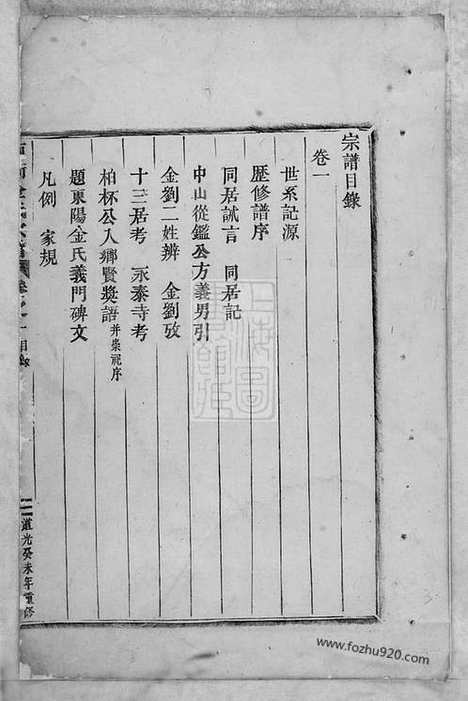 宗譜目錄
卷一
世系記源
歷修譜序
同居誡言　同居記
中山從鑑公方義男引
金劉二姓辨　金劉攷
十三居考　永泰寺考
柏杯公入鄉賢獎語并崇祀序
題東陽金氏義門碑文
凡例　家規
道光癸未年重修
www.fozhu920.com